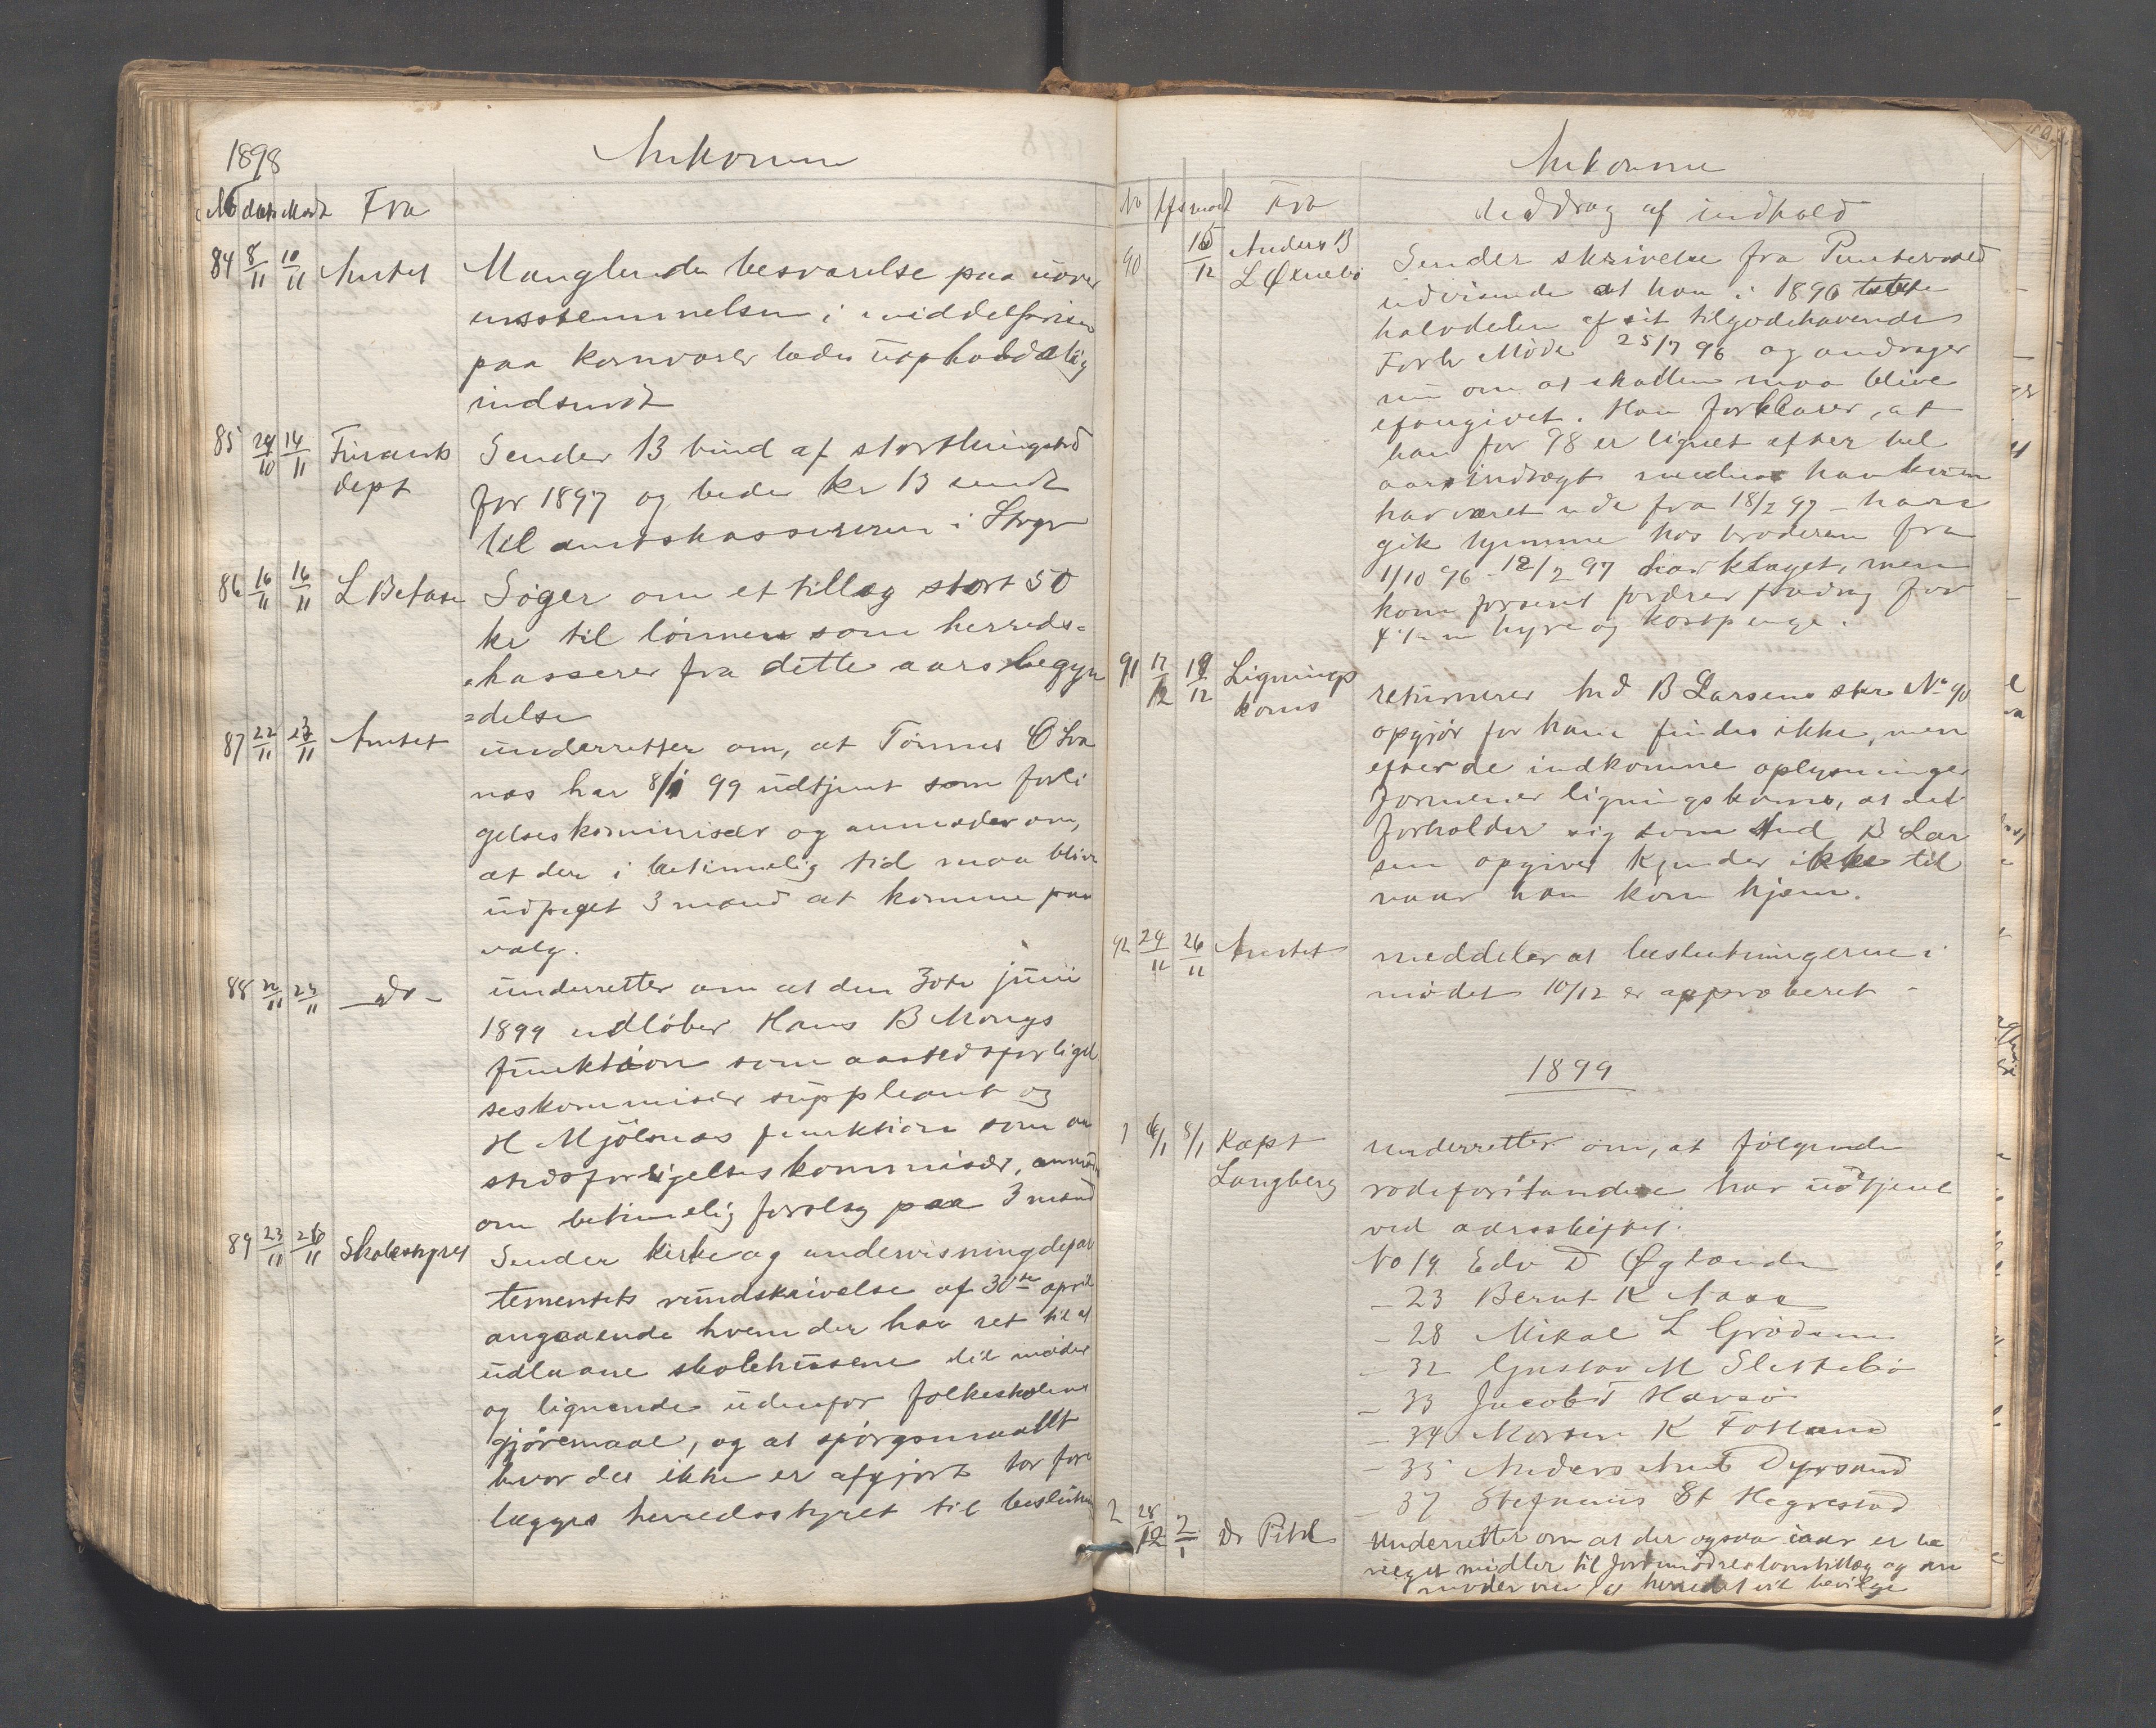 1898
Ankomne
No dat. Modt Fra
84 8/11 10/11 Amtet Manglende besvarelse paa uover
ensstemmelsen i middelprisen
paa kornvarer bedes uopholdelig
indsendt
85 24/10 14/11 Finants
dept
Sender 13 bind af storthingstid
for 1897 og beder kr 13 sendt
til amtskassereren i Stvgr
86 16/11 16/11 L Søger om et tillæg stort 50
kr til lønnen som herreds=
=kasserer fra dette aars begyn
=delse
87 22/11 23/11 Amtet underretter om, at Tønnes O
nes har 8/1 99 udtjent som forli
gelseskommisær og anmoder om,
at der i betimelig tid maa blive
udpeget 3 mænd at komme paa
valg.
88 22/11 23/11 — do — underretter om at den 30te juni
1899 udløber Hans B Monges
funktion som aastedsforligel
seskommisær suppleant og
H Mjølsnes funktion som aa
stedsforligelseskommisær, anmod
om betimelig forslag paa 3 mænd
89 23/11 26/11 Skolestyret Sender kirke og undervisningdepar
tementets rundskrivelse af 30te april
angaaende hvem der har ret til at
udlaane skolehusene til møder
og lignende udenfor folkeskolens
gjøremaal, og at spørgsmaalet
hvor det ikke er afgjort bør fore
lægges herredsstyret til beslutning
Ankomne
No Afs modt Fra Uddrag af indhold
90 15/12 Anders B
L Øxnebø
Sender skrivelse fra
udvisende at han i 1896 tabte
halvdelen af sit tilgodehavende
Forh Møde 25/7 96 og andrager
nu om at skatten maa blive
efongivet. Han forklarer, at
han for 98 er lignet efter hel
aarsindtægt medens han kun
har været ude fra 18/2 97 – han
gik hjemme hos broderen fra
1/10 96 – 18/2 97 har klaget, men
kom forsent fordrer fradrag for
4 1/2 m hyre og kostpenge.
91 17/12 19/12 Lignings
koms
returnerer And B Larsens skr No 90
opgjør for ham findes ikke, men
efter de indkomne oplysninger
formener ligningskoms, at det
forholder sig som And B Lar
sen opgiver kjender ikke til
naar han kom hjem.
92 24/11 26/11 Amtet meddeler at beslutningerne i
mødet 10/12 er approberet –
1899
1 6/1 8/1 Kapt
Langberg
underretter om, at følgende
rodeforstandere har udtjent
ved aarsskiftet.
No 19 Edv D Øglænd
– 23 Bernt K Aase
– 28 Mikal L Grødem
– 32 Gustav M Slettebø
– 33 Jacob T Havsø
– 34 Morten K Fotland
– 35 Anders And Dyrsand
– 37 Stefanus St Hegrestad
2 28/12 2/1 Dr Pihl Underretter om at der ogsaa iaar er be
vilget midler til jordmødreslønstillæg og an
moder om at herredet vil bevilge